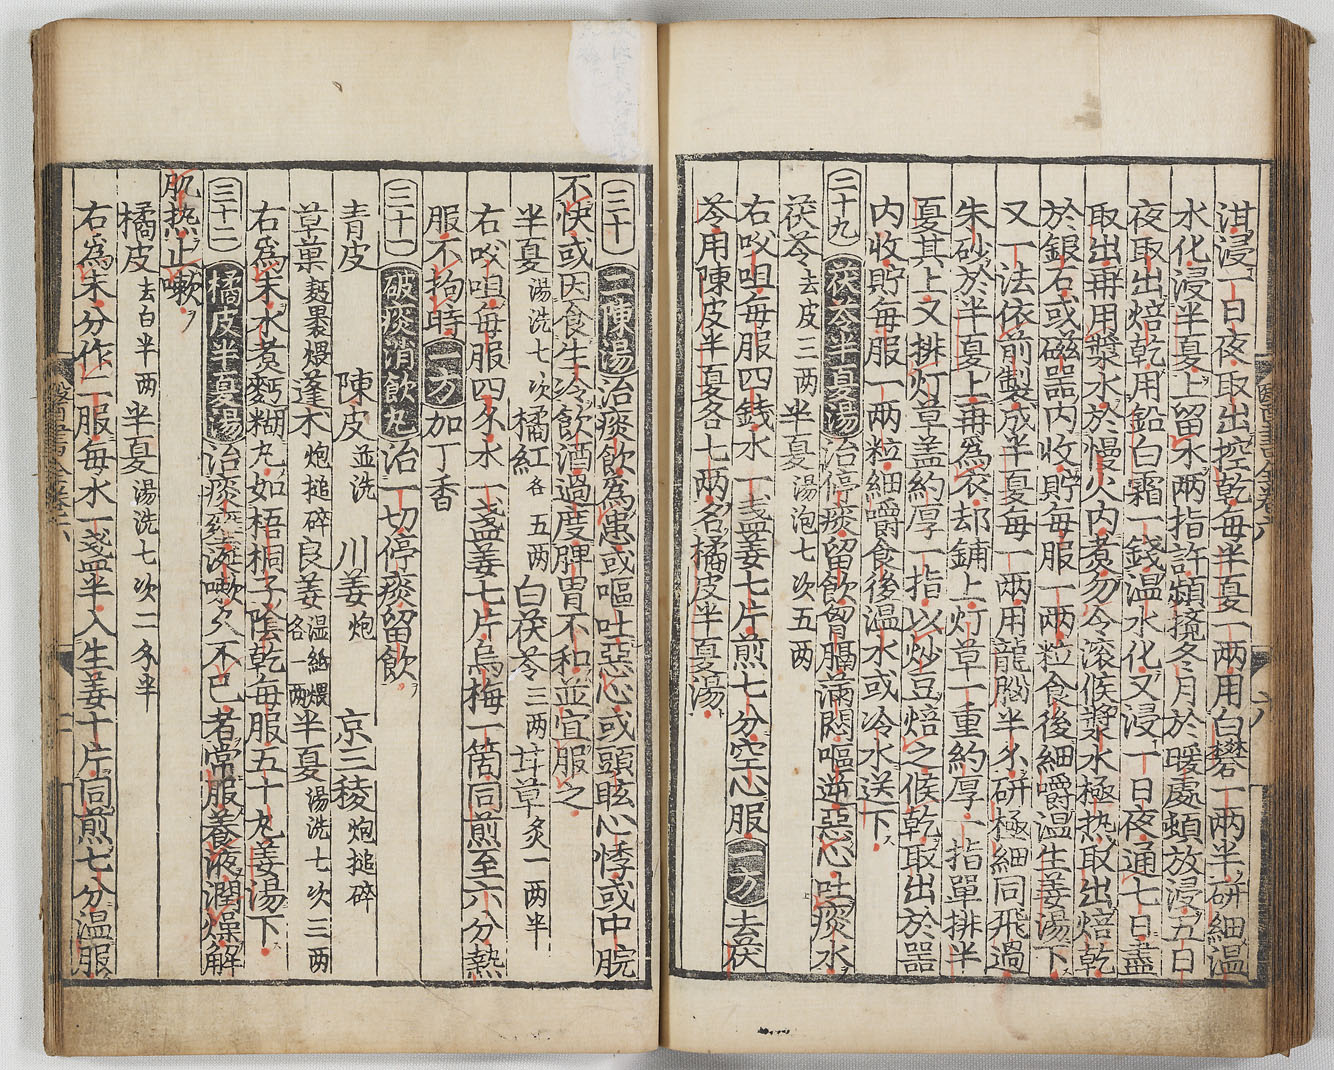 泔浸一日夜取出控乾每半夏一两用白礬一两半研細温
水化浸半夏上留水两指許頻攪冬月於暖處頓放浸五日
夜取出焙乾用鉛白霜一錢温水化又浸一日夜通七日盡
取出再用漿水於慢火内煮勿令滚候漿水極热取出焙乾
於銀石或磁器内收貯每服一两粒食後細嚼温生姜湯下
又一法依前製成半夏每一两用龍腦半分研極細同飛過
朱砂於半夏上再為衣却鋪上灯草一重約厚一指單排半
夏其上又排灯草盖約厚一指以炒豆焙之候乾取出於器
内收貯每服一两粒細嚼食後温水或冷水送下
二十九 茯苓半夏湯 治停痰留飲胷膈滿悶嘔逆惡心吐痰水
茯苓去皮三两 半夏湯泡七次五两
右㕮咀每服四錢水一盞姜七片煎七分空心服 一方 去茯
苓用陳皮半夏各七两名橘皮半夏湯
三十 二陳湯 治痰飲為患或嘔吐惡心或頭眩心悸或中脘
不快或因食生冷飲酒過度脾胃不和並宜服之
半夏湯洗七次 橘紅各五两 白茯苓三两 甘草炙一两半
右㕮咀每服四分水一盞姜七片烏梅一箇同煎至六分熱
服不拘時 一方 加丁香
三十一 破痰消飲丸 治一切停痰留飲
青皮 陳皮並洗 川姜炮 京三稜炮搥碎
草菓麪裹煨 蓬术炮搥碎 良姜温紙煨各一两 半夏湯洗七次三两
右為末水煮麪糊丸如梧桐子陰乾每服五十丸姜湯下
三十二 橘皮半夏湯 治痰壅涎嗽久不已者常服養液潤燥解
肌热止嗽
橘皮去白半两 半夏湯洗七次二分半
右為末分作二服每水一盞半入生姜十片同煎七分温服